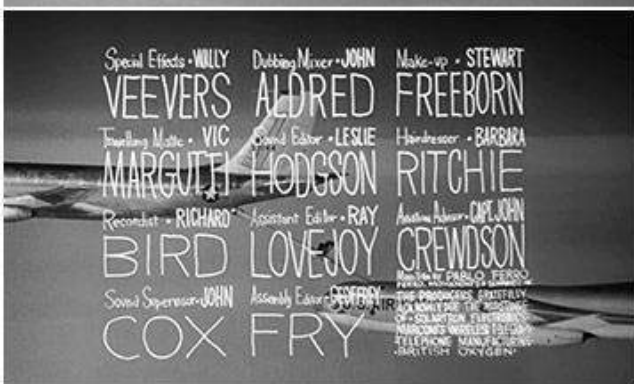 Special Effects · WALLY
VEEVERS
Travelling Matte · VIC
MARGUTTI
Recordist · RICHARD
BIRD
Sound Supervisor · JOHN
COX
Dubbing Mixer · JOHN
ALDRED
Sound Editor · LESLIE
HODGSON
Assistant Editor · RAY
LOVEJOY
Assembly Editor · GEOFFREY
FRY
Make-up · STEWART
FREEBORN
Hairdresser · BARBARA
RITCHIE
Aviation Advisor · CAPT. JOHN
CREWDSON
Main title by PABLO FERRO
THE PRODUCERS GRATEFULLY
ACKNOWLEDGE THE ASSISTANCE
OF · SOLARTRON ELECTRONICS
MARCONI'S WIRELESS TELEGRAPH
TELEPHONE MANUFACTURING
·BRITISH OXYGEN·
U.S. AIR